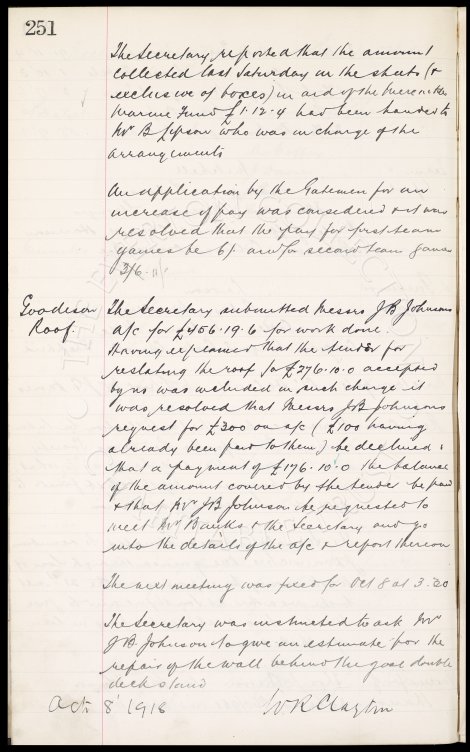 251
The Secretary reported that the amount
collected last Saturday in the sheets (&
exclusive of boxes) in aid of the Mercantile
Marine Fund £1.12.4 had been handed to
Mr B Lipson who was in charge of the
arrangements
An application by the Gatemen for an
increase of pay was considered & it was
resolved that the pay for first team
games be 6/- and for second team games
3/6.
Goodison
Roof.
The Secretary submitted Messrs J B Johnsons
a/c for £456.19.6 for work done.
Having explained that the tender for
reslating the roof for £276.10.0 accepted
by us was included in such charge it
was resolved that Messrs J B Johnsons
request for £300 on a/c (£100 having
already been paid to them) be declined &
that a payment of £176.10.0 the balance
of the amount covered by the tender be paid
& that Mr J B Johnson be requested to
meet Mr Banks & the Secretary and go
into the details of the a/c & report thereon
The next meeting was fixed for Oct 8 at 3.20
The Secretary was instructed to ask Mr
J B Johnson to give an estimate for the
repair of the wall behind the goal double
deck stand
Oct 8 1918
W R Clayton